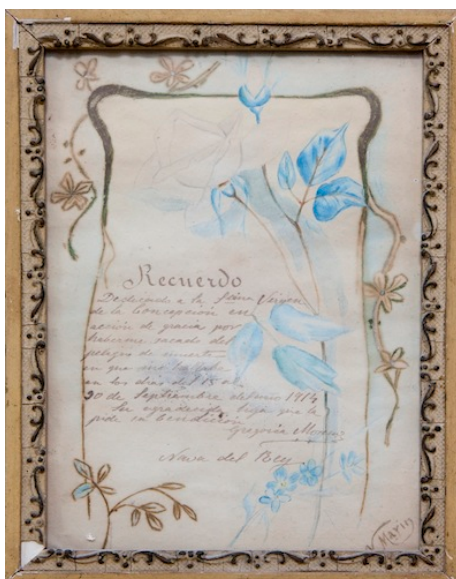 Recuerdo
Dedicado a la Sma Virgen
de la Concepción en
acción de gracia por
haberme sacado del
peligro de muerte
en que me
en los dias del 15 al
30 de Septiembre del año 1914
Su agradecida hija que le
pide su bendición
Gregoria
Nava del Rey
Marin